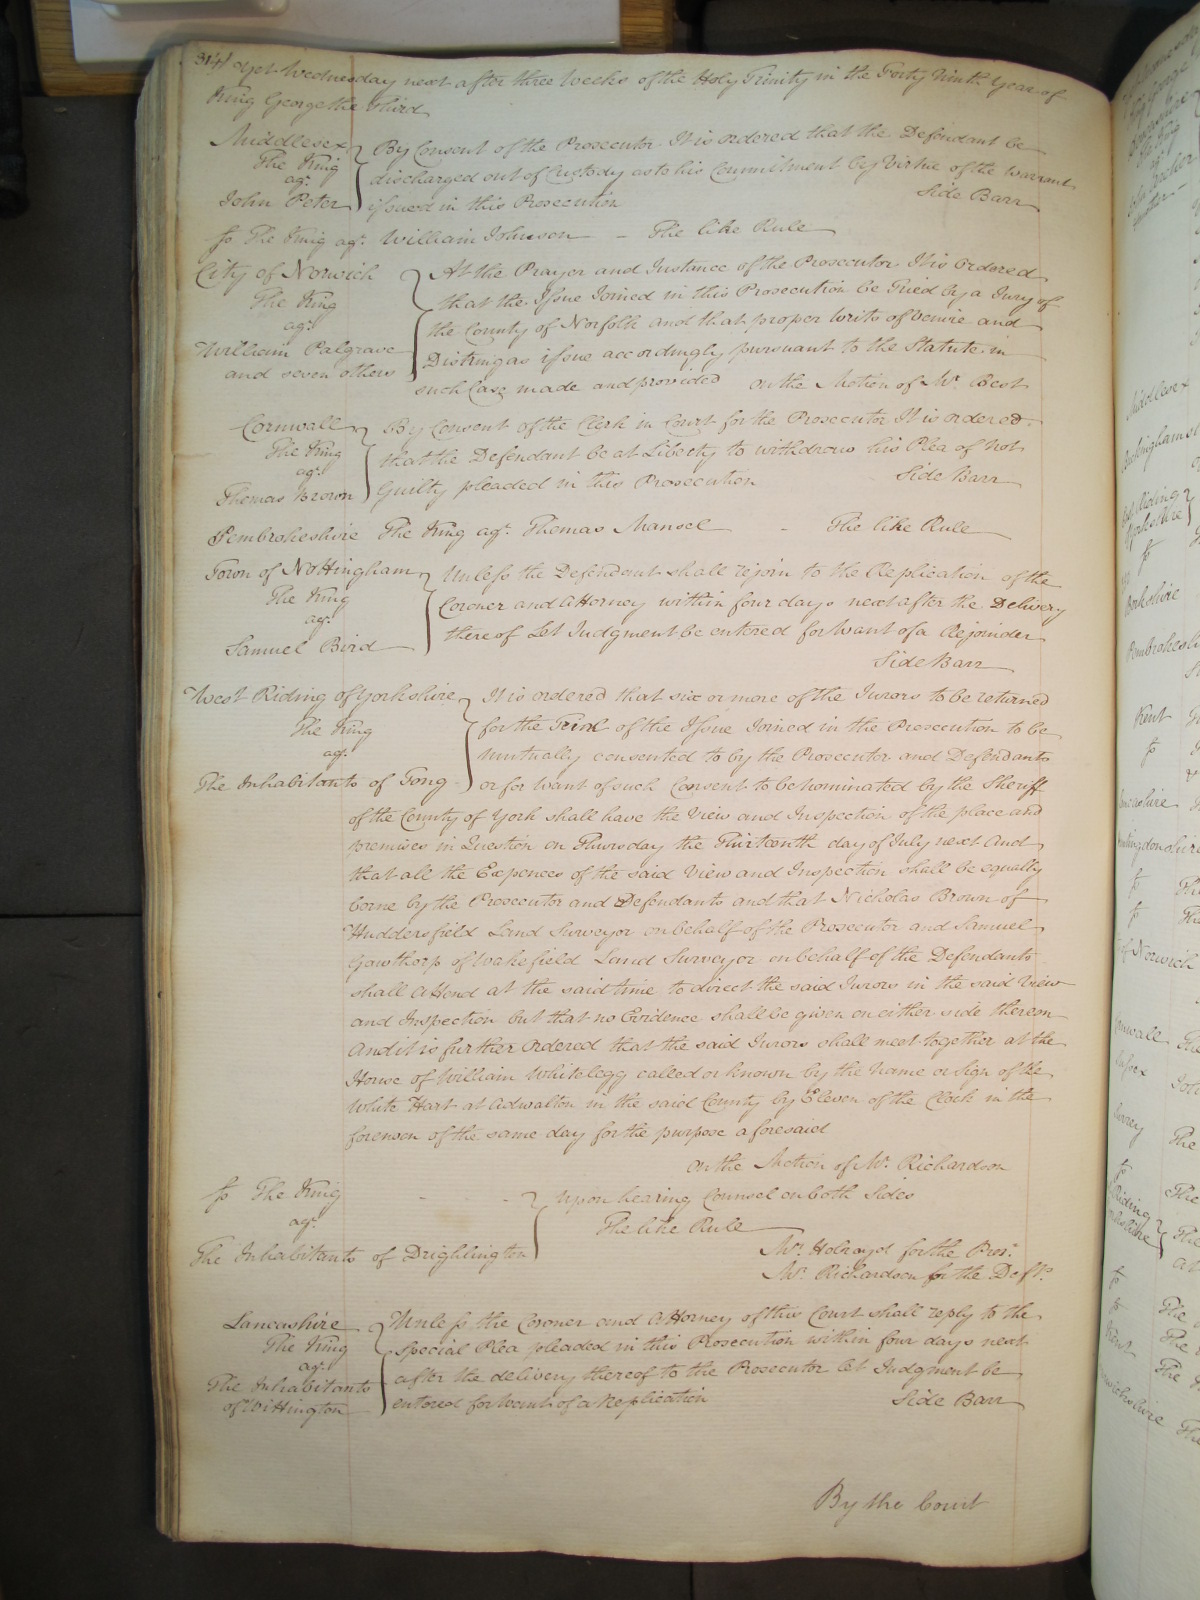 314 Yet Wednesday next after three Weeks of the Holy Trinity in the Forty Ninth Year of
King George the Third
Middlesex
The King
agt.
John Peter
By Consent of the Prosecutor It is ordered that the Defendant be
discharged out of Custody as to his Commitment by Virtue of the Warrant
issued in this Prosecution Side Barr
so The King agt. William Johnson – The like Rule
City of Norwich
The King
agt.
William Palgrave
and seven others
At the Prayer and Instance of the Prosecutor It is Ordered
that the Issue Joined in this Prosecution be Tried by a Jury of
the County of Norfolk and that proper Writs of Venire and
Distringas issue accordingly pursuant to the Statute in
such Case made and provided on the Motion of Mr. Best
Cornwall
The King
agt.
Thomas Brown
By Consent of the Clerk in Court for the Prosecutor It is ordered
that the Defendant be at Liberty to withdraw his Plea of Not
Guilty pleaded in this Prosecution Side Barr
Pembrokeshire The King agt. Thomas Mansel - The like Rule
Town of Nottingham
The King
agt.
Samuel Bird
Unless the Defendant shall rejoin to the Replication of the
Coroner and Attorney within four days next after the Delivery
thereof Let Judgment be entered for Want of a Rejoinder
Side Barr
West Riding of Yorkshire
The King
agt.
The Inhabitants of Tong
It is ordered that six or more of the Jurors to be returned
for the Trial of the Issue Joined in the Prosecution to be
mutually consented to by the Prosecutor and Defendants
or for Want of such Consent to be nominated by the Sheriff
of the County of York shall have the View and Inspection of the place and
premises in Question on Thursday the Thirteenth day of July next And
that all the Expences of the said View and Inspection shall be equally
borne by the Prosecutor and Defendants and that Nicholas Brown of
Huddersfield Land Surveyor on behalf of the Prosecutor and Samuel
Gawthorp of Wakefield Land Surveyor on behalf of the Defendants
shall Attend at the said time to direct the said Jurors in the said View
and Inspection but that no Evidence shall be given on either side thereon
And it is further Ordered that the said Jurors shall meet together at the
House of William Whitelegg called or known by the Name or Sign of the
White Hart at Adwalton in the said County by Eleven of the Clock in the
forenoon of the same day for the purpose aforesaid
On the Motion of Mr. Richardson
so The King
agt.
The Inhabitants of Drighlington
Upon hearing Counsel on both Sides
The like Rule
Mr. Holroyd for the Pros.
Mr. Richardson for the Deft.
Lancashire
The King
agt.
The Inhabitants
of Wittington
Unless the Coroner and Attorney of this Court shall reply to the
special Plea pleaded in this Prosecution within four days next
after the delivery thereof to the Prosecutor let Judgment be
entered for Want of a Replication Side Barr
By the Court
Middlesex
Buckinghams
Riding
Yorkshire
so
Berkshire
Pembrokeshi
Kent
so
so
so
The
The
of Norwich
The
Surrey
The
so
The
Riding
The
so
so
The
The
Kent
The
The